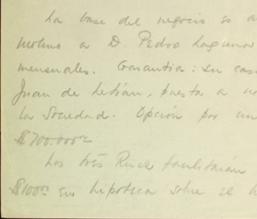 La base del negocio es a
molino a D. Pedro Laguna
mensuales. Garantia: su cas
Juan de Letrán, puestas a no
la Sociedad. Opción por un
$700.000ºº
Los tres Ruiz facilitarían
$100ºº en hipoteca sobre el